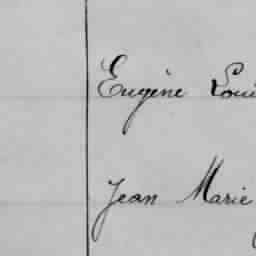 Eugène Loui
Jean Marie